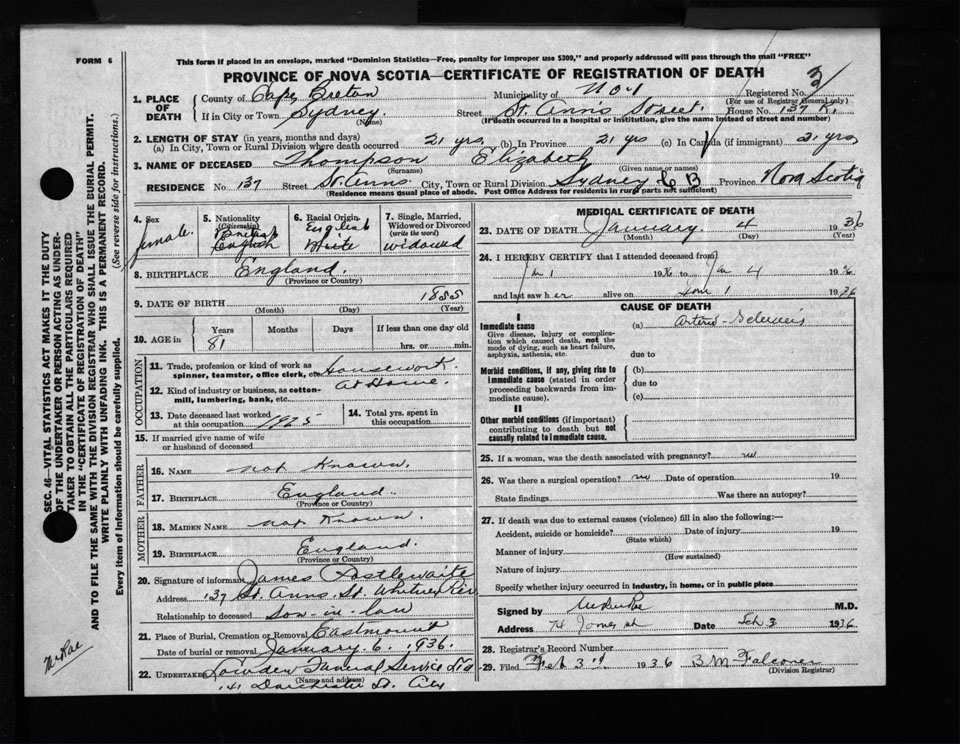 FORM 6
This form if placed in an envelope, marked "Dominion Statistics—Free, penalty for improper use $300," and properly addressed will pass through the mail "FREE"
PROVINCE OF NOVA SCOTIA—CERTIFICATE OF REGISTRATION OF DEATH
Registered No. 3
(For use of Registrar General only)
1. PLACE OF DEATH
County of Cape Breton Municipality of
If in City or Town Sydney Street St. Ann's Street. House No. 137
(Name) (If death occurred in a hospital or institution, give the name instead of street and number)
2. LENGTH OF STAY (in years, months and days)
(a) In City, Town or Rural Division where death occurred 21 yrs. (b) In Province 21 yrs (c) In Canada (if immigrant) 21 yrs
3. NAME OF DECEASED Thompson Elizabeth
(Surname) (Given name or names)
RESIDENCE No. 137 Street St. Anns. City, Town or Rural Division Sydney C B Province Nova Scotia
(Residence means usual place of abode. Post Office Address for residents in rural parts not sufficient)
4. Sex
female.
5. Nationality
(Citizenship)
British
English
6. Racial Origin
English
White
7. Single, Married, Widowed or Divorced
(write the word)
widowed
8. BIRTHPLACE England.
(Province or Country)
9. DATE OF BIRTH 1855
(Month) (Day) (Year)
10. AGE in
Years Months Days If less than one day old
81 hrs. or min.
OCCUPATION
11. Trade, profession or kind of work as spinner, teamster, office clerk, etc. Housework.
12. Kind of industry or business, as cotton-mill, lumbering, bank, etc. At Home.
13. Date deceased last worked at this occupation 1925
14. Total yrs. spent in this occupation
15. If married give name of wife or husband of deceased
FATHER
16. NAME not Known.
17. BIRTHPLACE England.
(Province or Country)
MOTHER
18. MAIDEN NAME not Known.
19. BIRTHPLACE England.
(Province or Country)
20. Signature of informant James Postlewaite
Address 137 St. Anns. St. Whitney Pier
Relationship to deceased son-in-law
21. Place of Burial, Cremation or Removal Eastmount
Date of burial or removal January 6. 1936.
22. UNDERTAKER Funeral Service Ltd
(Name and address)
41 Dorchester St. City
MEDICAL CERTIFICATE OF DEATH
23. DATE OF DEATH January. 4 1936
(Month) (Day) (Year)
24. I HEREBY CERTIFY that I attended deceased from
Jan 1 1936 to Jan 4 1936
and last saw her alive on Jan 1 1936
CAUSE OF DEATH
I
Immediate cause
Give disease, injury or complication which caused death, not the mode of dying, such as heart failure, asphyxia, asthenia, etc.
(a) Arterio-Sclerosis
due to
Morbid conditions, if any, giving rise to immediate cause (stated in order proceeding backwards from immediate cause).
(b)
due to
(c)
II
Other morbid conditions (if important) contributing to death but not causally related to immediate cause.
25. If a woman, was the death associated with pregnancy? no
26. Was there a surgical operation? no Date of operation 19
State findings Was there an autopsy?
27. If death was due to external causes (violence) fill in also the following:—
Accident, suicide or homicide? Date of injury 19
(State which)
Manner of injury
(How sustained)
Nature of injury
Specify whether injury occurred in industry, in home, or in public place
Signed by M.D.
Address 74 Date Feb 3 1936
28. Registrar's Record Number
29. Filed Feb 3rd 1936 B M Falconer
(Division Registrar)
SEC. 46—VITAL STATISTICS ACT MAKES IT THE DUTY
OF THE UNDERTAKER OR PERSON ACTING AS UNDER-
TAKER TO OBTAIN ALL THE PARTICULARS REQUIRED
IN THE "CERTIFICATE OF REGISTRATION OF DEATH"
AND TO FILE THE SAME WITH THE DIVISION REGISTRAR WHO SHALL ISSUE THE BURIAL PERMIT.
WRITE PLAINLY WITH UNFADING INK. THIS IS A PERMANENT RECORD.
Every item of information should be carefully supplied. (See reverse side for instructions.)
McRae